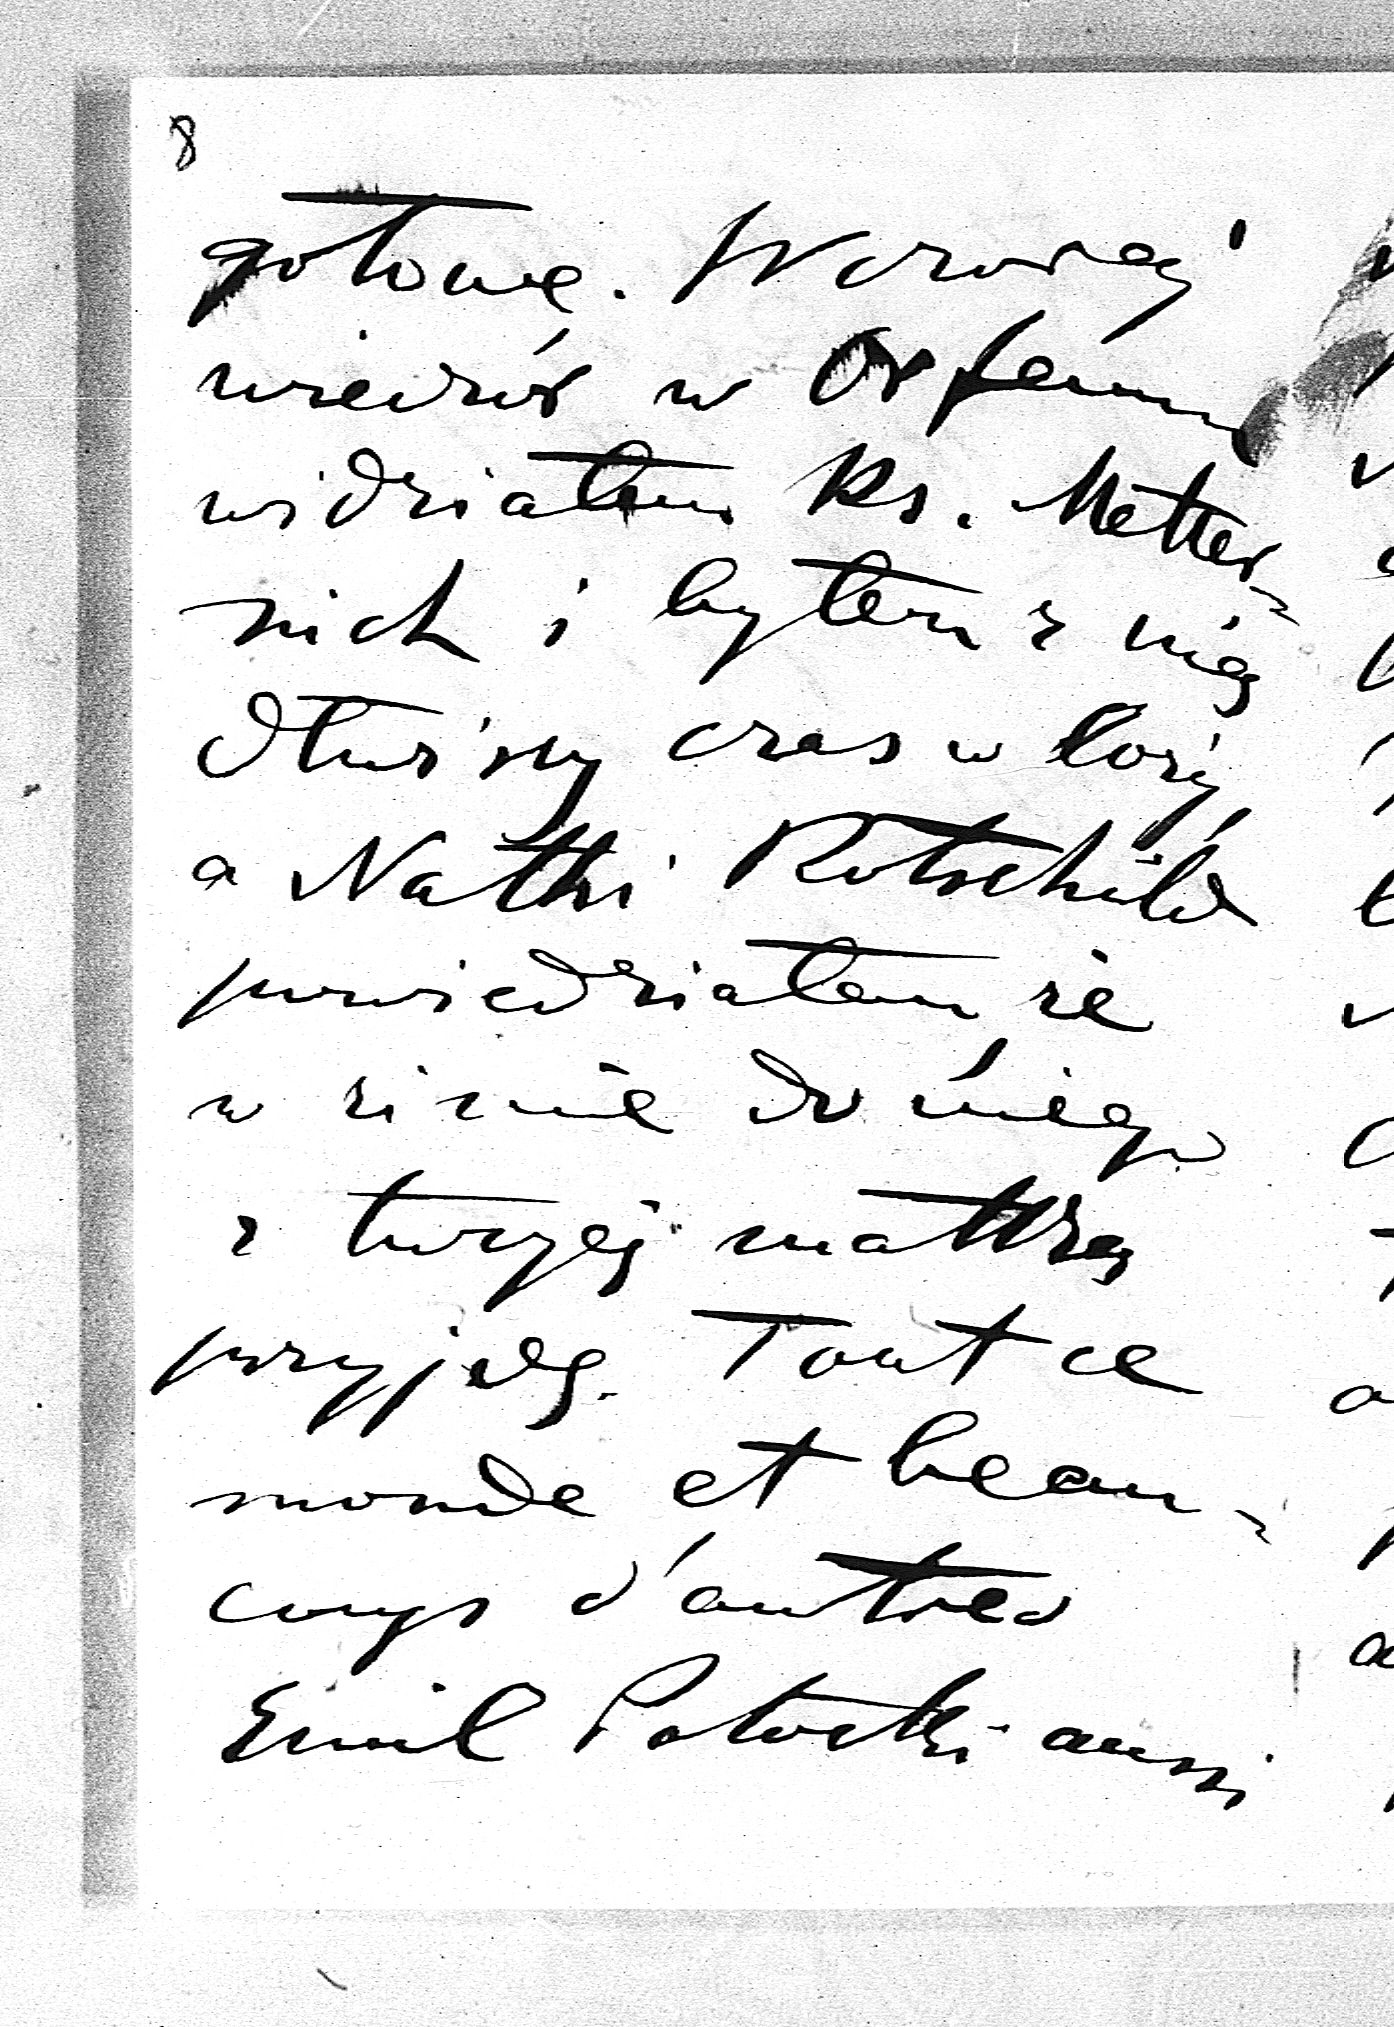 8
gotowe. Wczoraj
wieczór w Orfeum
widziałem Ks. Metter-
nich i byłem z nią
dłuższy czas w loży
a Natki Rotschild
powiedziałem że
w zimie do niego
z twojej matką
przyjdę. Tout ce
monde et beau-
coup d'autres
Emil Potocki aussi